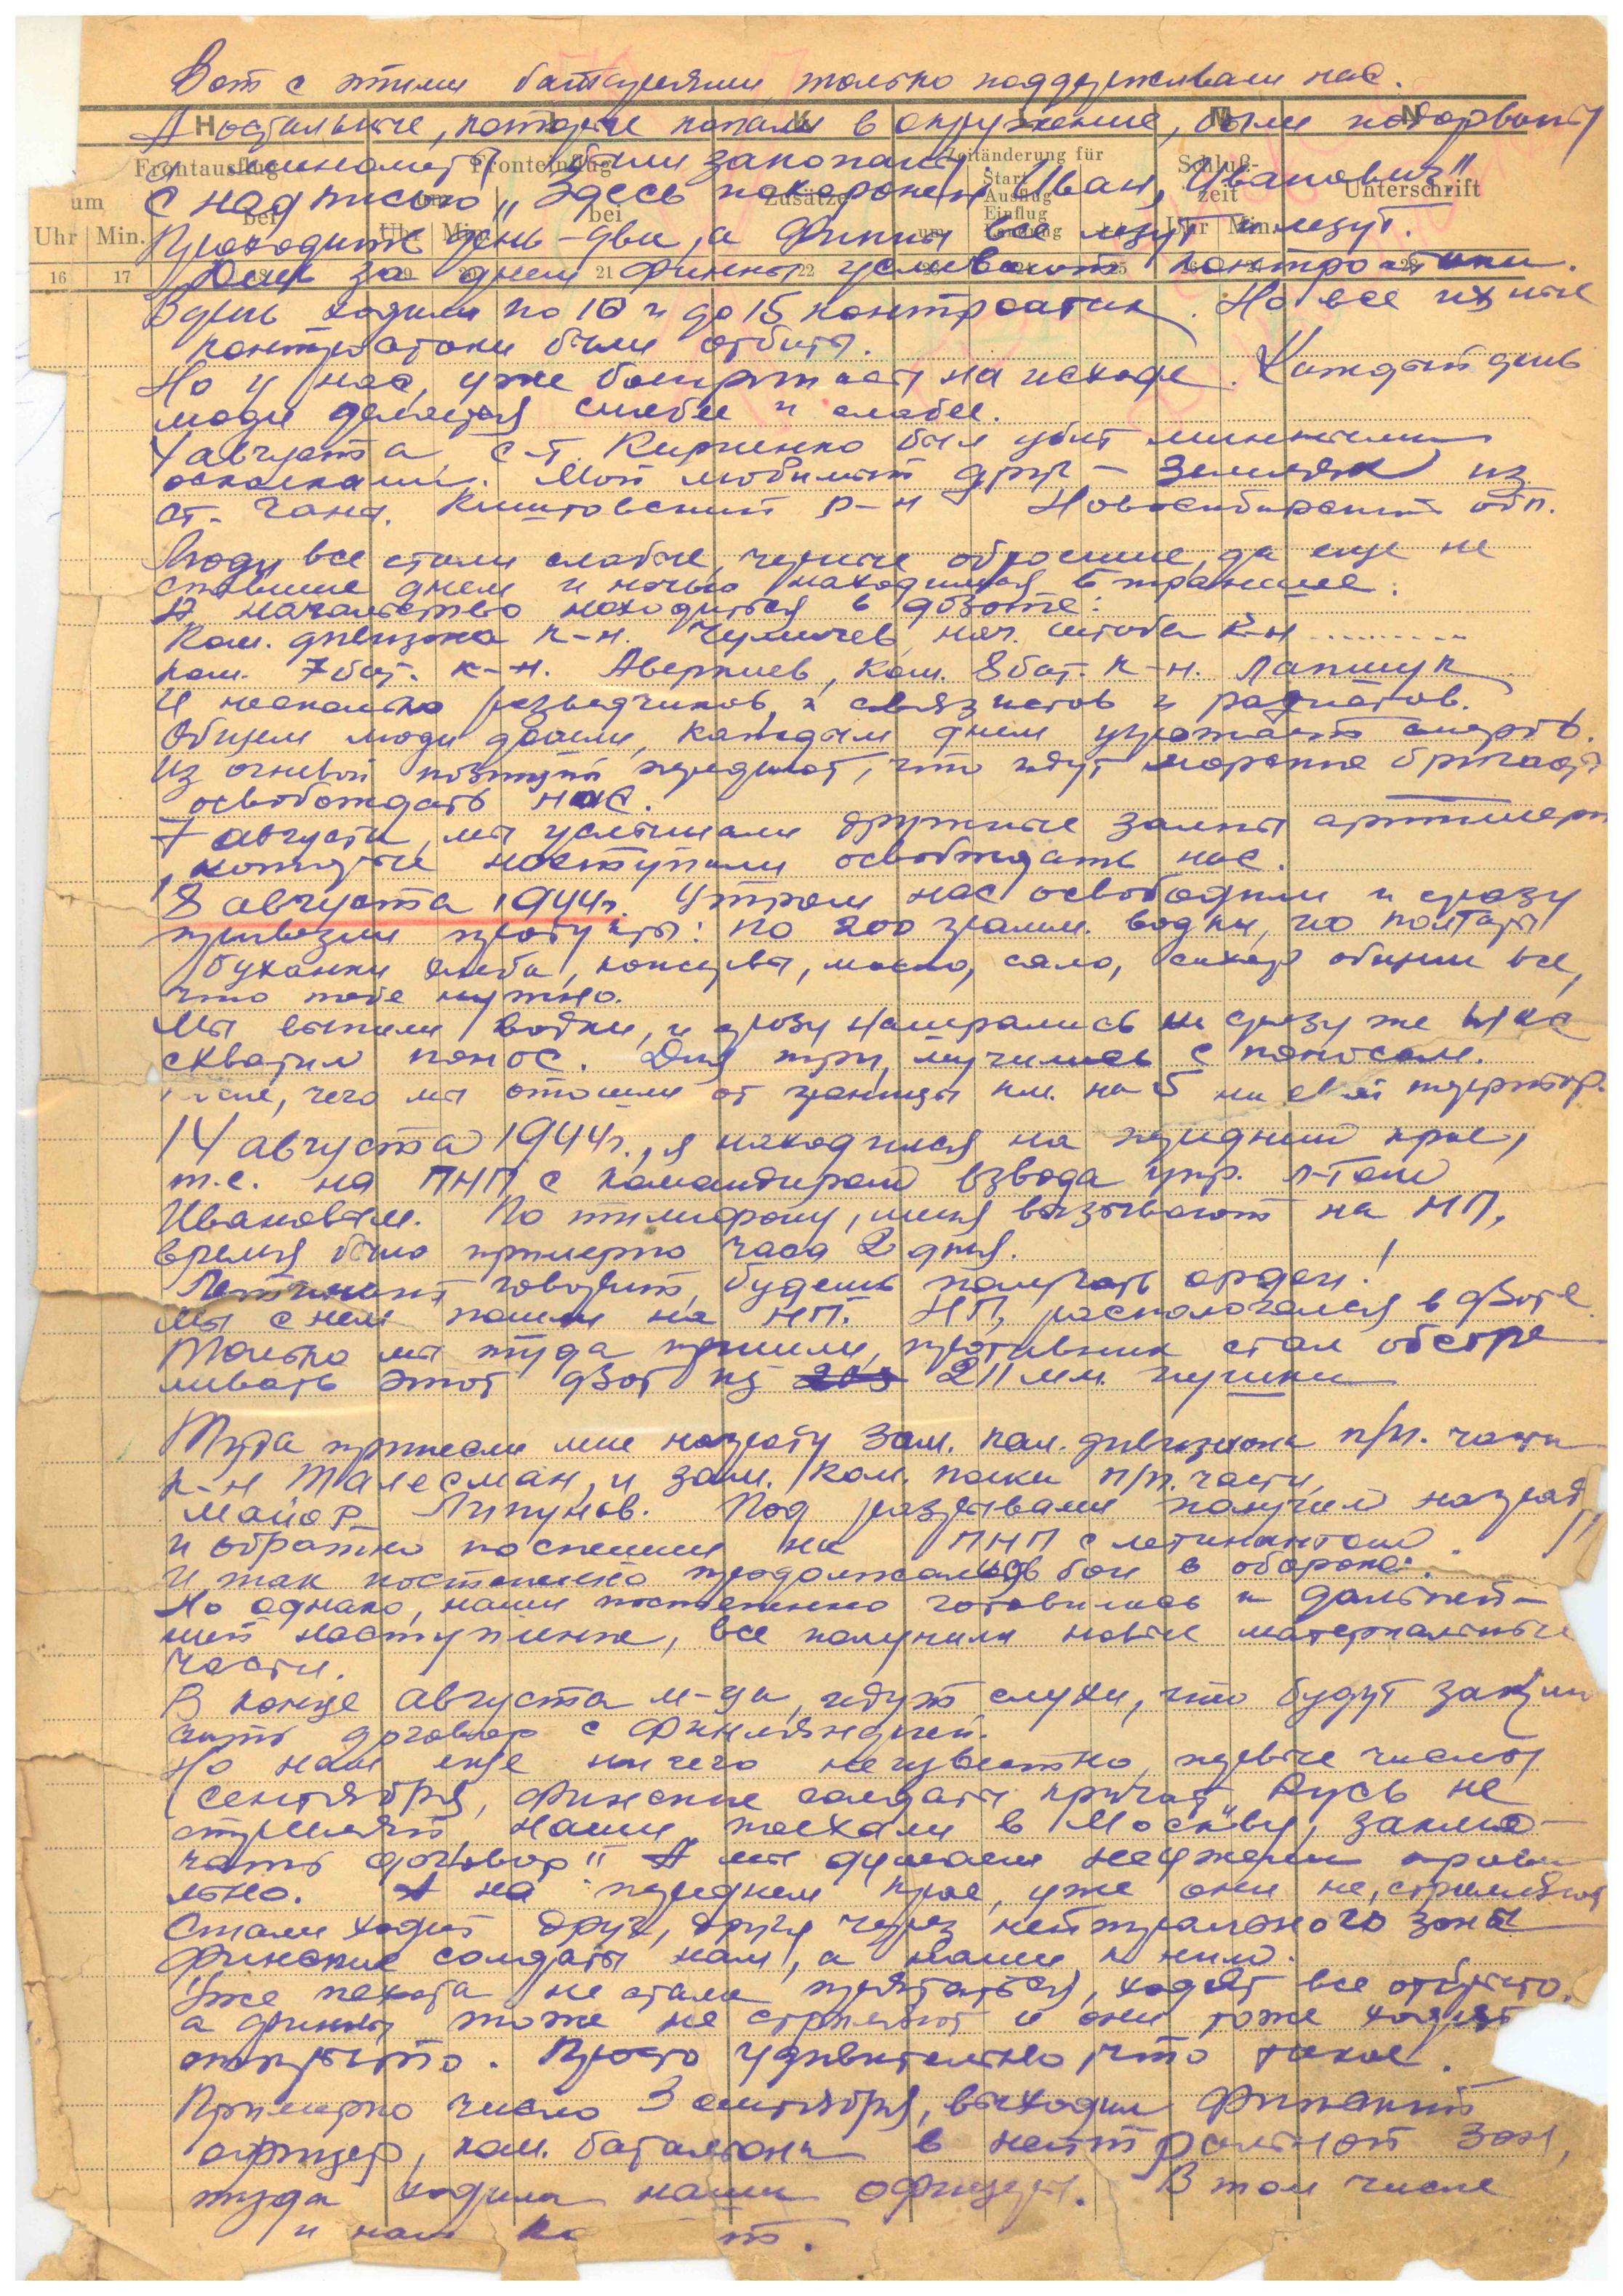 Вот с этими батареями только поддерживали нас.
А остальные, которые попали в окружение, были подорваны
были закопаны
Frontausflug
Fronteinflug
Zeitänderung für
Schluß-
zeit
Unterschrift
с надписью „Здесь похоронен Иван, Иванович"
um
bei
bei
Zusätze
Start
Ausflug
Einflug
Landung
Uhr Min.
Uhr Min.
um
Uhr Min.
Проходите день-два, а финны все лезут и лезут.
16 17 18 19 20 21 22 25
День за днем финны усиливают контратаки.
В день ходили по 10 и до 15 контратак. Но все их
контратаки были отбиты.
Но у нас, уже боеприпасы на исходе. Каждый день
люди делаются слабее и слабее.
4 августа с-т. Кириенко был убит минными
осколками. Мой любимый друг - земляк из
ст. Чаны. Кыштовский р-н Новосибирский обл.
Люди все стали слабые, черные обросшие, да еще не
спавшие днем и ночью находимся в траншее.
А начальство находиться в дзоте:
Ком. дивизиона к-н. Чумичев, нач. штаба к-н..........
ком. 7 бат. к-н. Аверкиев, ком. 8 бат. к-н. Лапшук
И несколько разведчиков, и связистов и радистов.
Общем люди дошли, каждым днем угрожает смерть.
Из огневой позиции передают, что идут морские бригады
освобождать нас.
7 августа, мы услышали дружные залпы артиллерии
, которые наступили освобождать нас.
8 августа 1944г. Утром нас освободили и сразу
привезли продукты: по 200 грамм. водки, по полторы
буханки хлеба, консервы, масло, сало, сахар общем все,
что тебе нужно.
Мы выпили водки, и сразу нажрались и сразу же нас
схватил понос. Дня три, мучились с поносом.
после, чего мы отошли от границы км. на 5 на свой територ.
14 августа 1944г., я находился на передний крае,
т.е. на ПНП с командиром взвода упр. л-том
Ивановым. По тилифону, меня вызывают на НП,
время было примерно часа 2 дня.
Летинант говорит, будешь получать орден!
мы с ним пошли на НП. НП, распологался в дзоте
Только мы туда пришли, противник стал обстре
ливать этот дзот из 203 211 мм. пушки
Туда принесли мне награду зам. ком. дивизиона п/п. части
к-н Талесман, и зам. ком. полка п/п. части,
Майор Липунов. Под разрывами получил награду
и обратно поспешил на ПНП с летинантом.
И так постепенно продолжались бои в обороне.
Но однако, наши постепенно готовились к дальней-
шей наступление, все получили новые материальные
части.
В конце августа м-ца, идут слухи, что будут заклю
чить договор с Финляндией.
Но нам еще ничего неизвестно, первые числы
сентября, финские солдаты кричат „Русь не
стреляй, наши поехали в Москву, заклю-
чать договор" А мы думаем неужели прави
льно. А на переднем крае, уже они не, стреляют
Стали ходит друг, друга через нейтрального зоны
финские солдаты нам, а наши к ним.
Уже пехота не стала прятаться, ходят все открыто,
а финны тоже не стреляют и они тоже ходят
открыто. Просто удивительно, что такое.
Примерно число 3 сентября, выходил финский
офицер, ком. батальона в нейтральной зоне,
туда ходили наши офицеры. В том числе
и наш